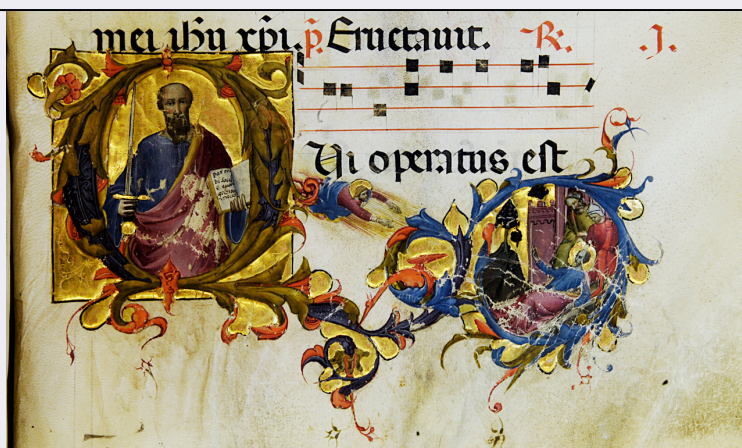 mei ihu xpi. p. Eructauit. R. J.
Ui operatus est